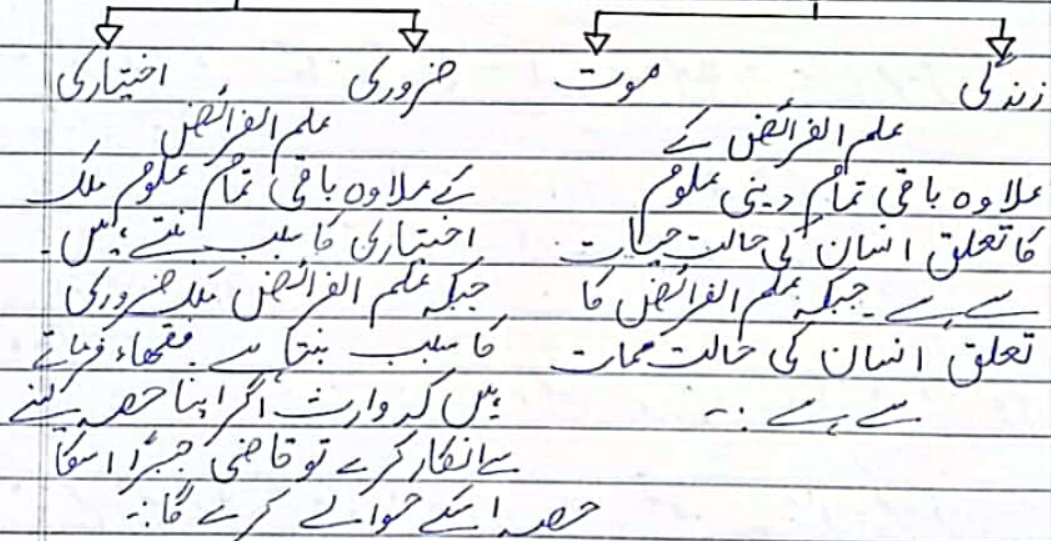 زندگی موت
علم الفرائض کے
علاوہ باقی تمام دینی علوم
کا تعلق انسان کی حالت حیات
سے ہے۔ جبکہ علم الفرائض کا
تعلق انسان کی حالت ممات
سے ہے :۔
ضروری اختیاری
علم الفرائض
کے علاوہ باقی تمام علوم ملک
اختیاری کا سبب بنتے ہیں۔
جبکہ علم الفرائض ملک ضروری
کا سبب بنتا ہے۔ فقھاء فرماتے
ہیں کہ وارث اگر اپنا حصہ لینے
سے انکار کرے تو قاضی جبرًا اسکا
حصہ اسکے حوالے کرے گا :۔